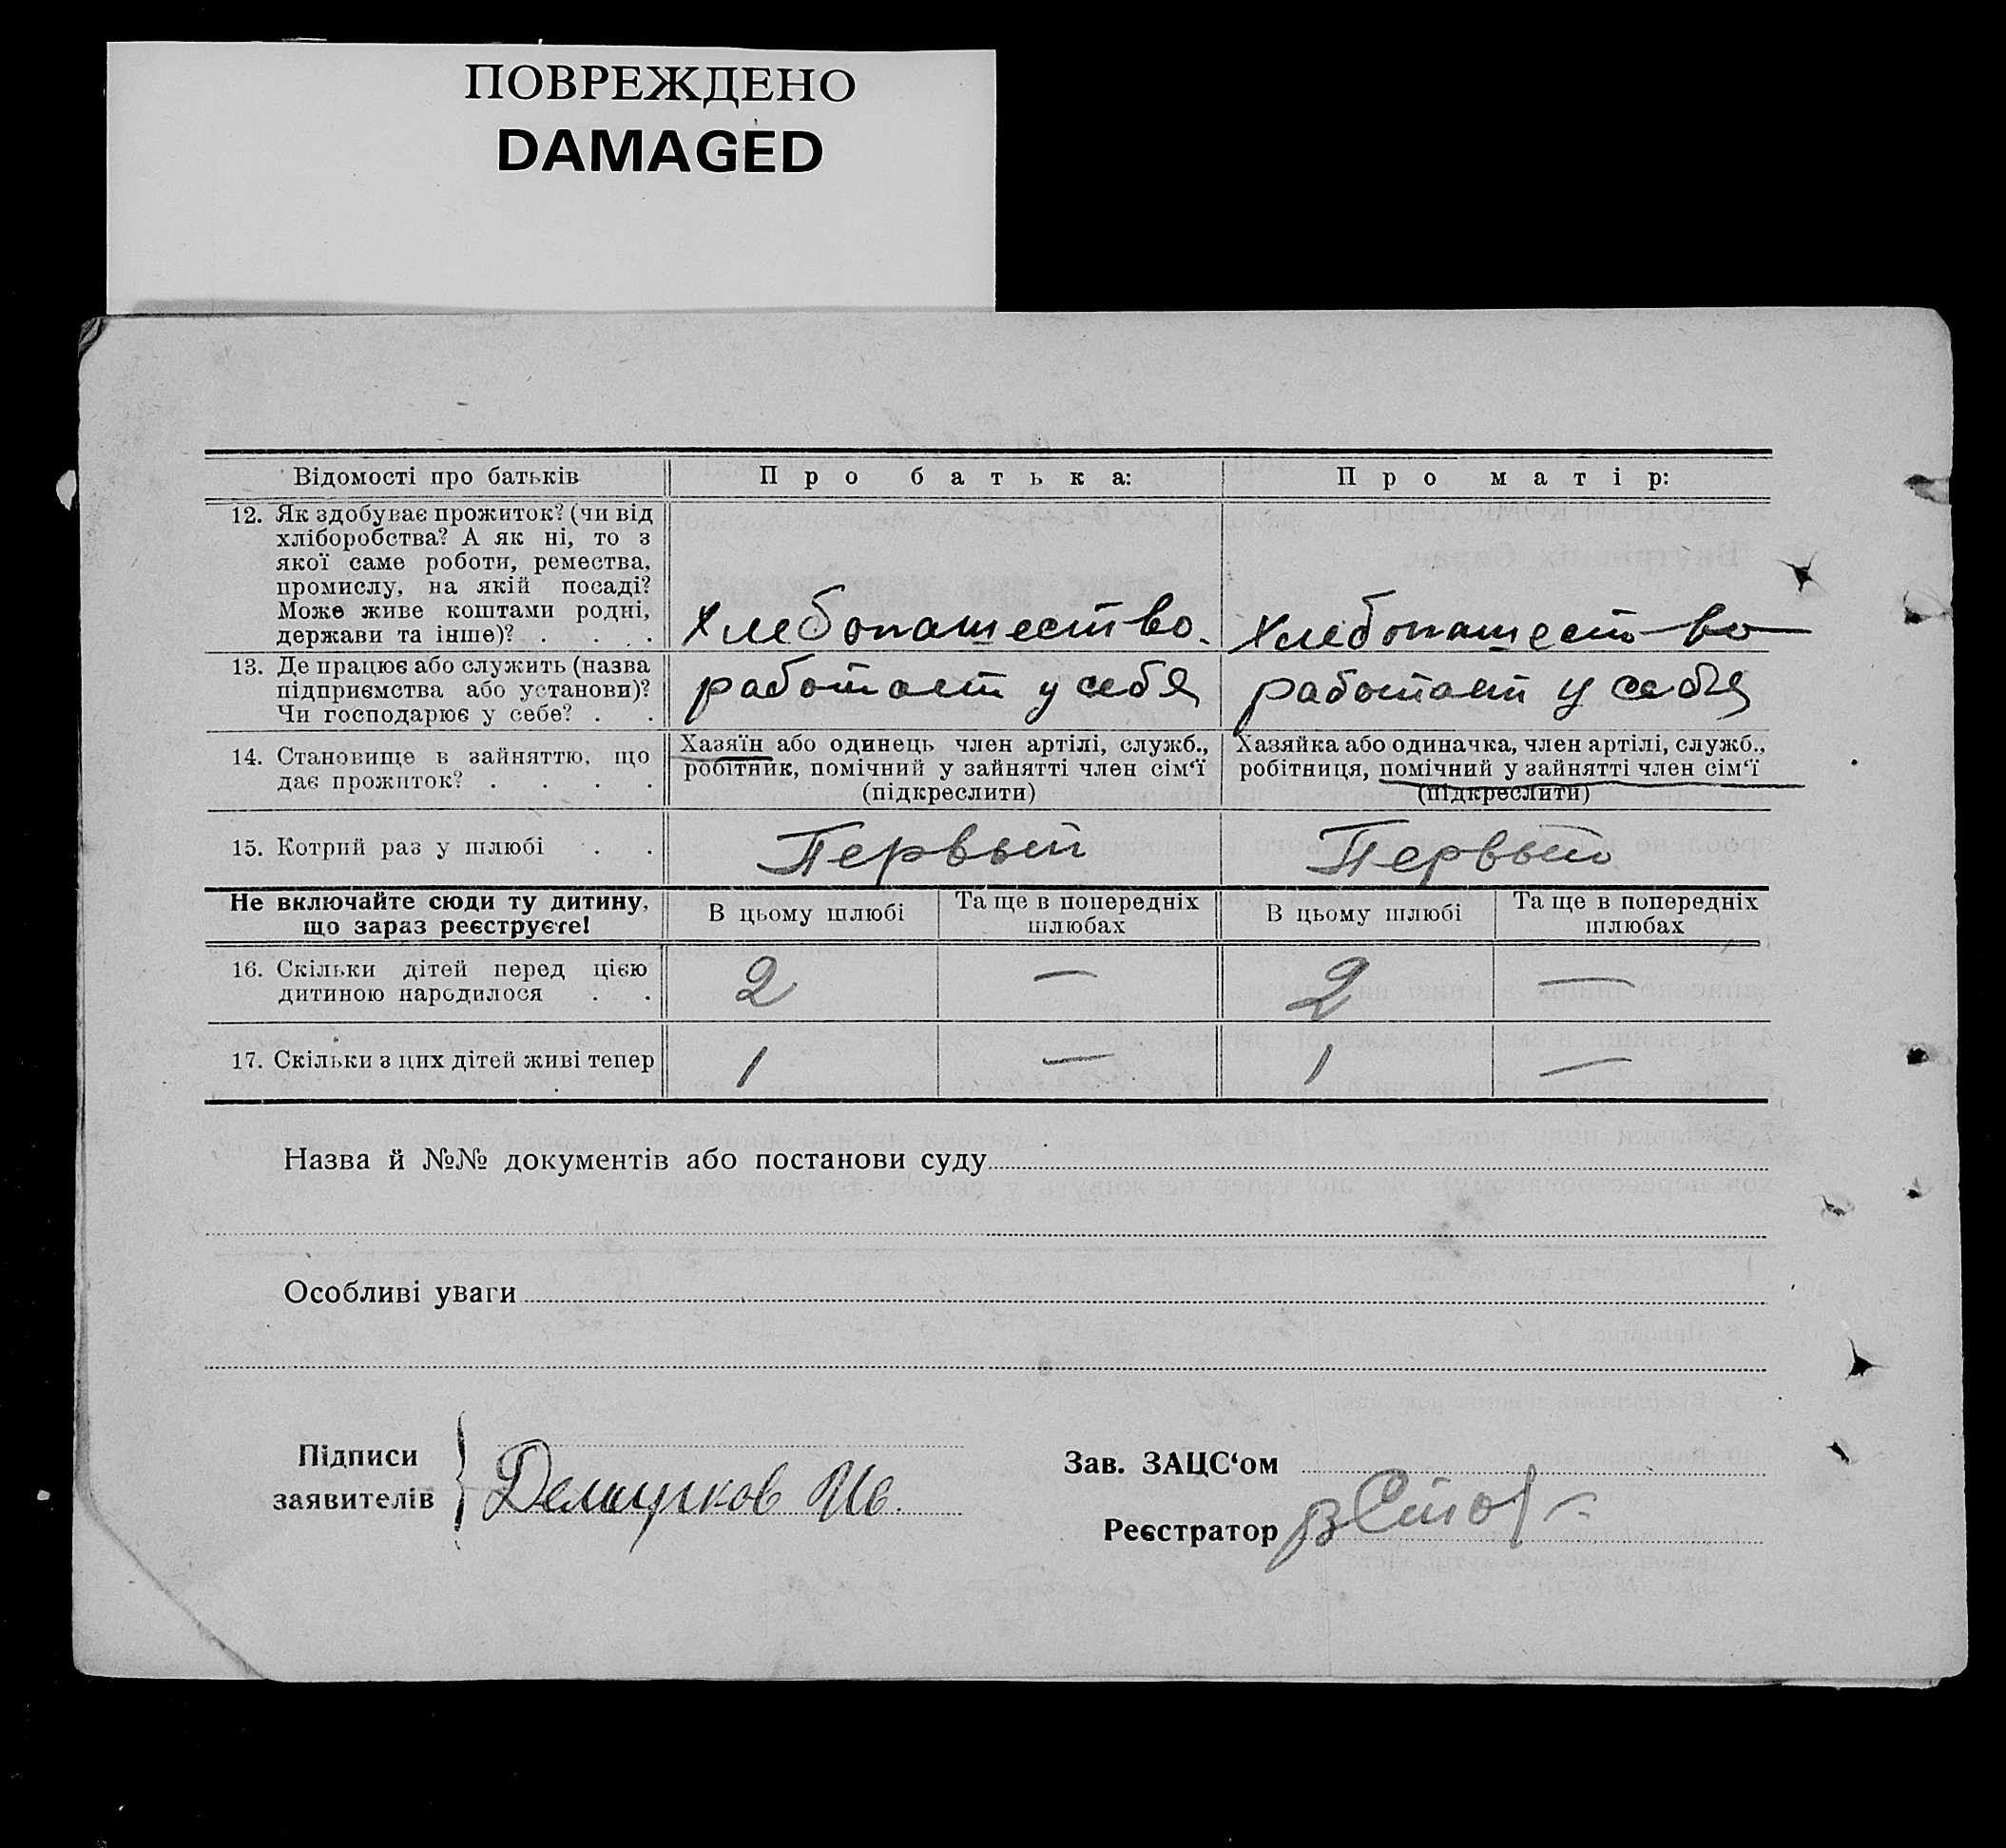 ПОВРЕЖДЕНО
DAMAGED
Відомості про батьків
Про батька:
Про матір:
12. Як здобуває прожиток? (чи від
хліборобства? А як ні, то з
якої саме роботи, ремества,
промислу, на якій посаді?
Може живе коштами родні,
держави та інше)? . . .
Хлебопашество.
Хлебопашество
13. Де працює або служить (назва
підприємства або установи)?
Чи господарює у себе? . .
работает у себя
работает у себя
14. Становище в зайняттю, що
дає прожиток? . . . .
Хазяїн або одинець член артілі, служб.,
робітник, помічний у зайнятті член сім‘ї
(підкреслити)
Хазяйка або одиначка, член артілі, служб.,
робітниця, помічний у зайнятті член сім‘ї
(підкреслити)
15. Котрий раз у шлюбі . .
Первый
Первый
Не включайте сюди ту дитину,
що зараз реєструєте!
В цьому шлюбі
Та ще в попередніх
шлюбах
В цьому шлюбі
Та ще в попередніх
шлюбах
16. Скільки дітей перед цією
дитиною народилося . .
2
—
2
—
17. Скільки з цих дітей живі тепер
1
—
1
—
Назва й №№ документів або постанови суду
Особливі уваги
Підписи
заявителів
Зав. ЗАЦС‘ом
Реєстратор